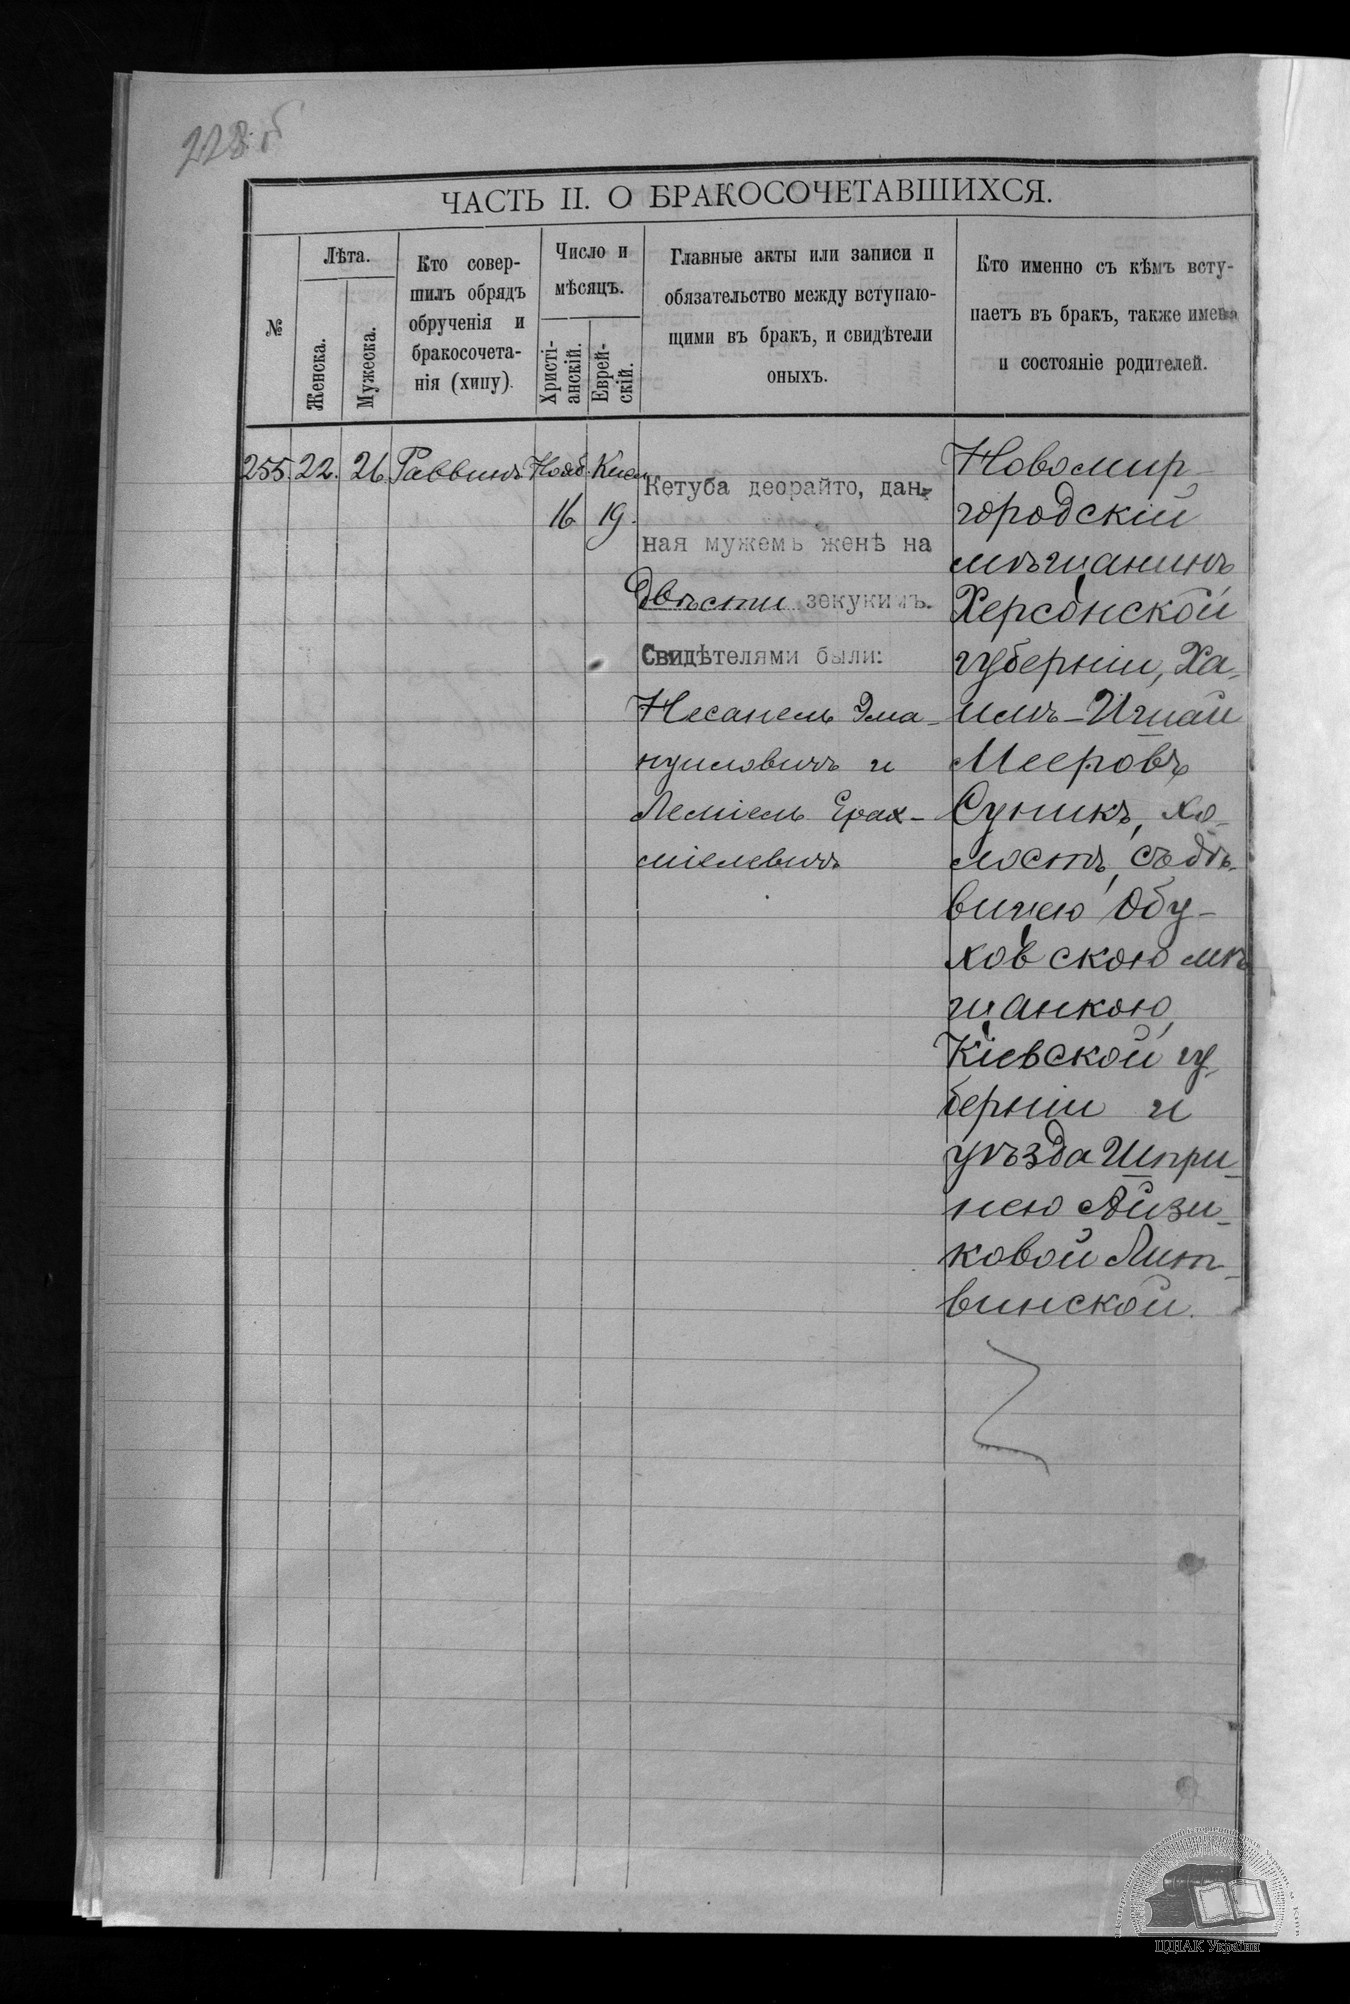 228 б
ЧАСТЬ II. О БРАКОСОЧЕТАВШИХСЯ.
№
Лѣта.
Женска.
Мужеска.
Кто совер-
шилъ обрядъ
обрученія и
бракосочета-
нія (хипу).
Число и
мѣсяцъ.
Христі-
анскій.
Еврей-
скій.
Главные акты или записи и
обязательство между вступаю-
щими въ бракъ, и свидѣтели
оныхъ.
Кто именно съ кѣмъ всту-
паетъ въ бракъ, также имена
и состояніе родителей.
255. 22. 26 Раввинъ
Нояб.
16
Кисл.
19.
Кетуба деорайто, дан-
ная мужемъ женѣ на
Двѣсти зекукимъ.
Свидѣтелями были:
Несанель Эма-
нуиловичъ и
Лемiель Ерах-
мiелевичъ
Новомир-
городскiй
мѣщанинъ
Херсонской
губернiи, Ха-
имъ-Ицхай
Мееровъ
Суникъ, хо-
лостъ, съ дѣ-
вицею Обу-
ховскою мѣ-
щанкою,
Кiевской гу-
бернiи и
уѣзда Шпри-
нею Айзи-
ковой Лит-
винской.
ЦДІАК України